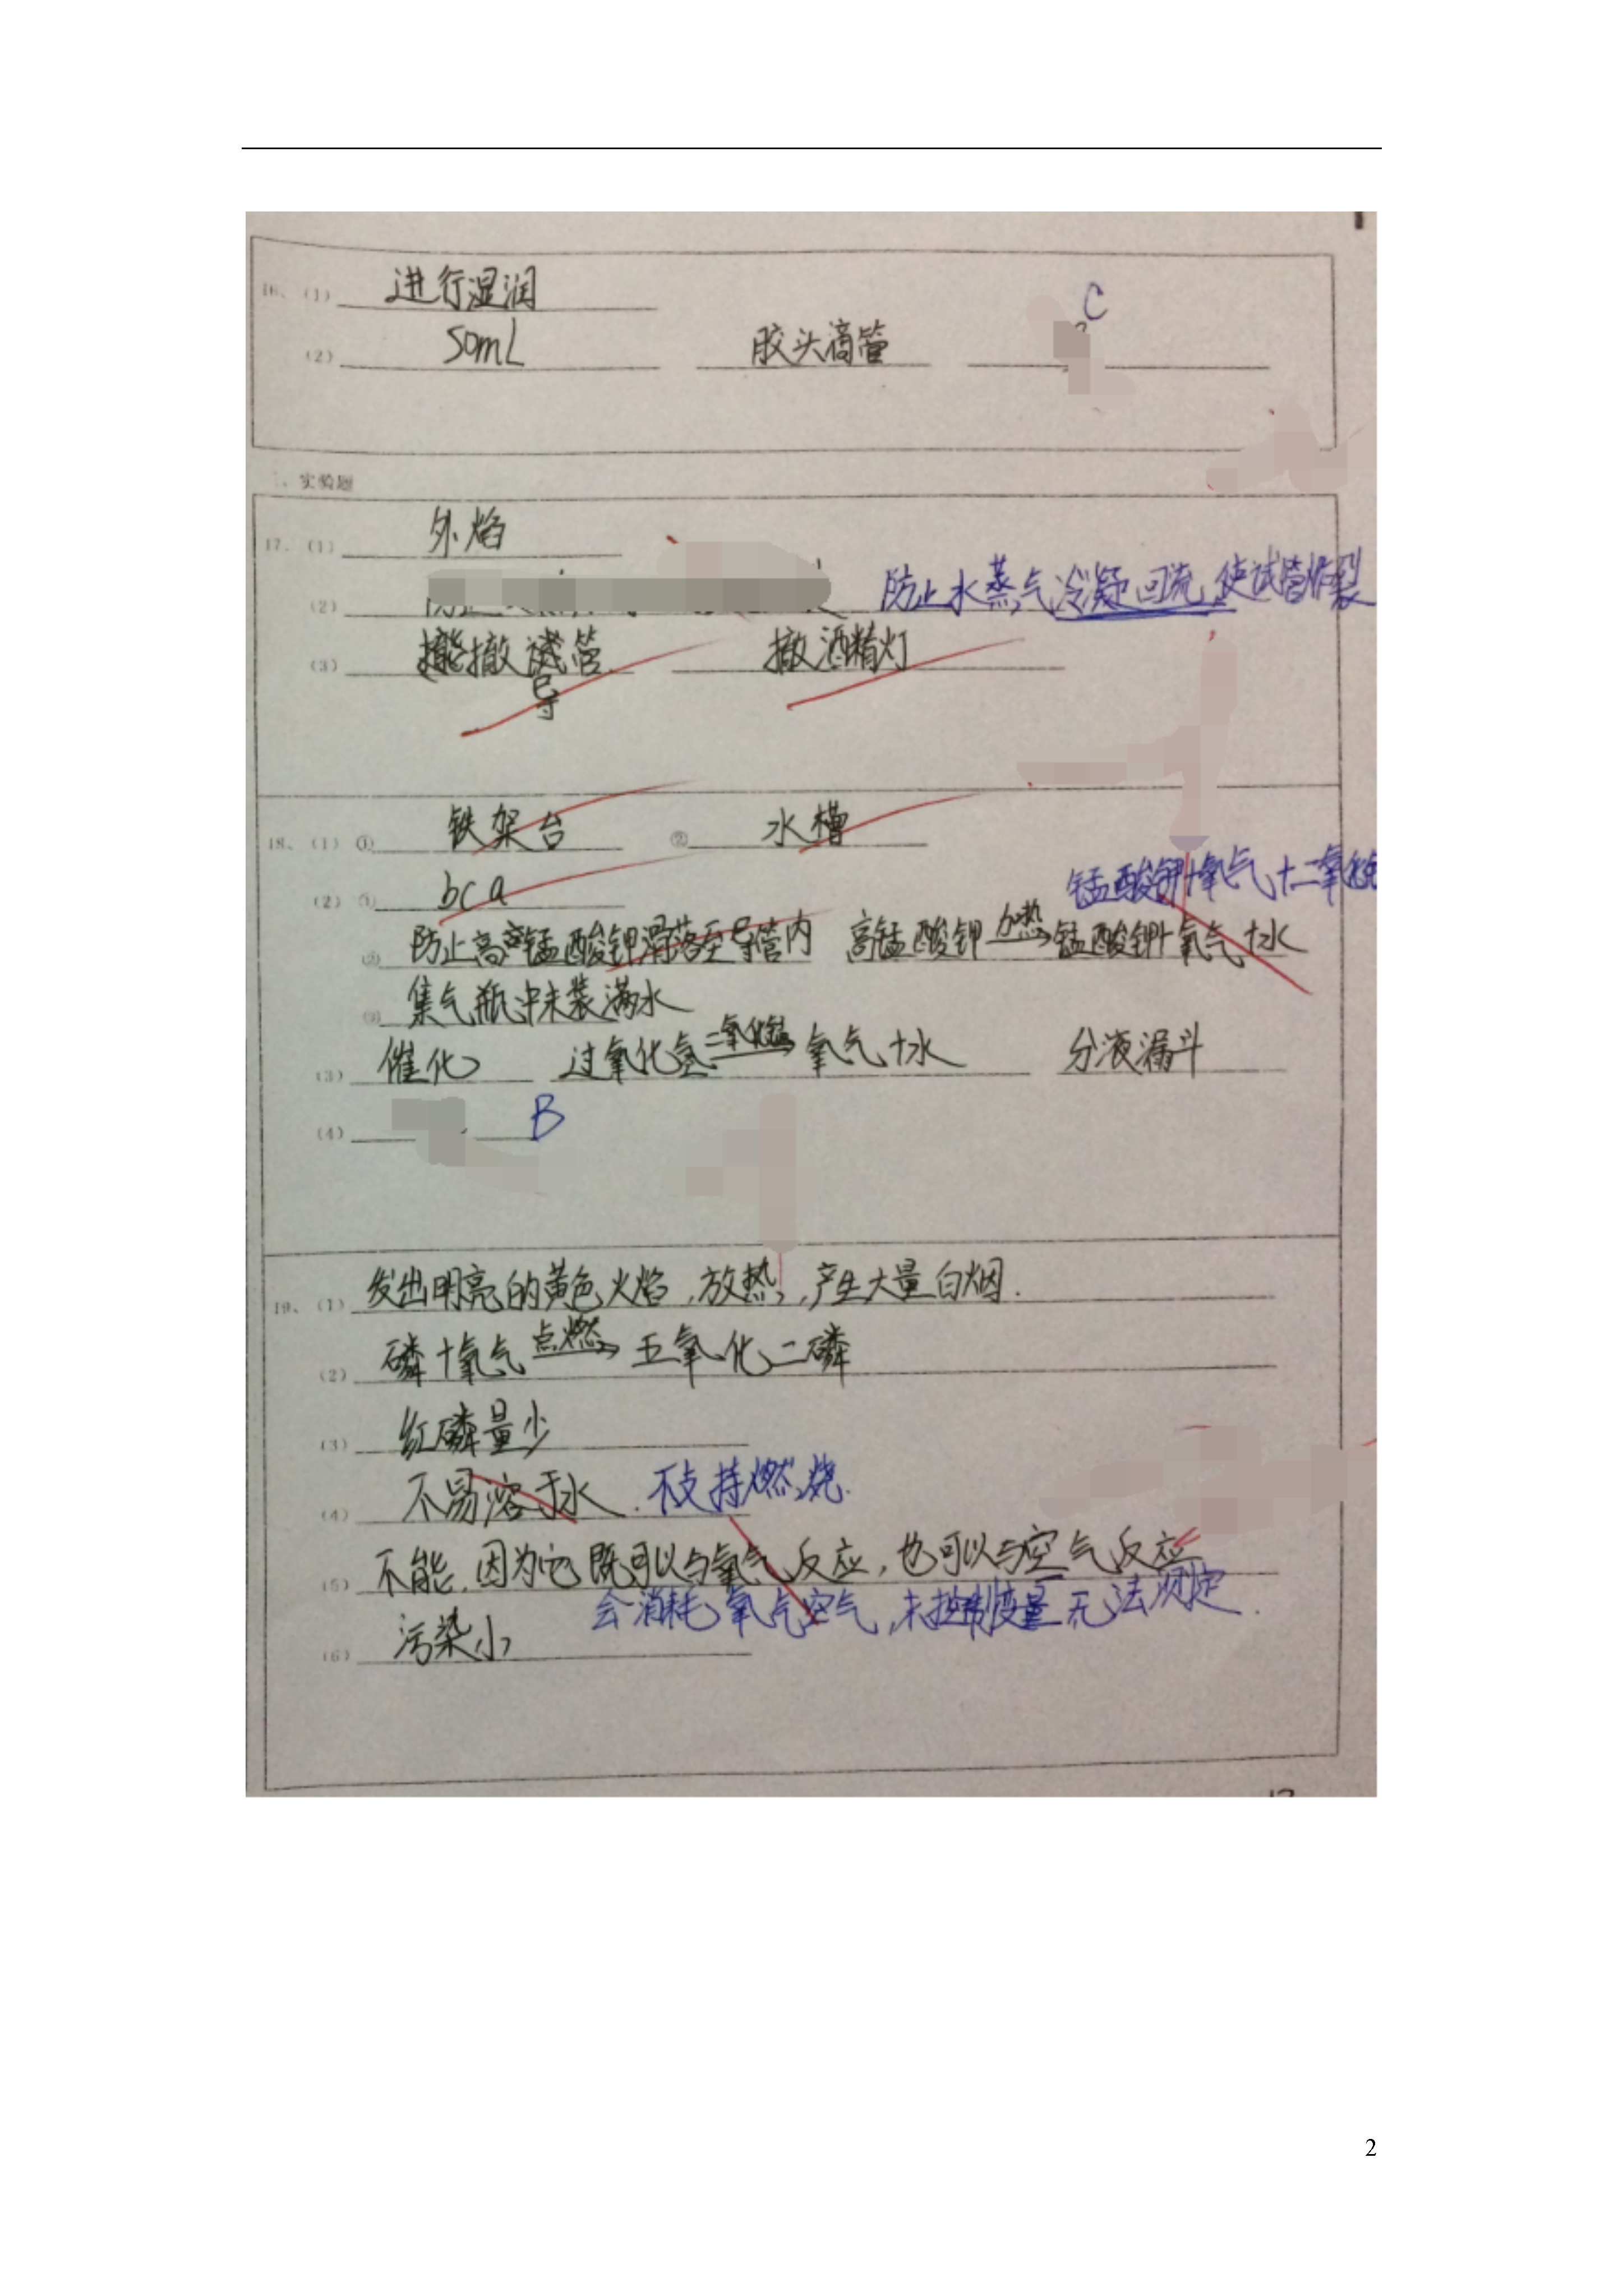 16、(1) 进行湿润
C
(2) 50mL 胶头滴管
二、实验题
17、(1) 外焰
(2) 防止水蒸气冷凝回流,使试管炸裂
(3) 撤试管 撤酒精灯
导
18、(1) ① 铁架台 ② 水槽
锰酸钾+氧气+二氧化锰
(2) ① bca
② 防止高锰酸钾滑落至导管内 高锰酸钾 加热→ 锰酸钾+氧气+水
③ 集气瓶中未装满水
(3) 催化 过氧化氢 二氧化锰→ 氧气+水 分液漏斗
(4) B
19、(1) 发出明亮的黄色火焰,放热,产生大量白烟.
(2) 磷+氧气 点燃→ 五氧化二磷
(3) 红磷量少
(4) 不易溶于水. 不支持燃烧.
(5) 不能,因为它既可以与氧气反应,也可以与空气反应
会消耗氧气空气,未控制变量无法测定.
(6) 污染小
2